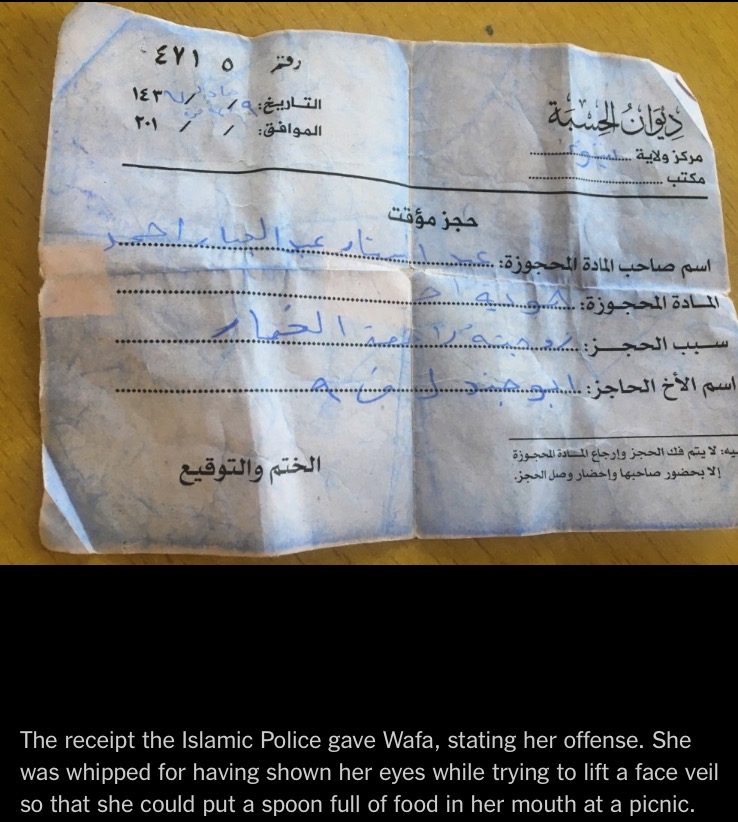 رقم ٥ ٤٧١
التاريخ: ٩ / / ١٤٣
الموافق: / / ٢٠١
ديوان الحسبة
مركز ولاية
مكتب
حجز مؤقت
اسم صاحب المادة المحجوزة: عبد الستار عبد الجبار احمد
المادة المحجوزة: هوية
سبب الحجز: زوجته رافعة الخمار
اسم الأخ الحاجز: ابو جند
لا يتم فك الحجز وإرجاع المادة المحجوزة
إلا بحضور صاحبها وإحضار وصل الحجز.
الختم والتوقيع
The receipt the Islamic Police gave Wafa, stating her offense. She
was whipped for having shown her eyes while trying to lift a face veil
so that she could put a spoon full of food in her mouth at a picnic.